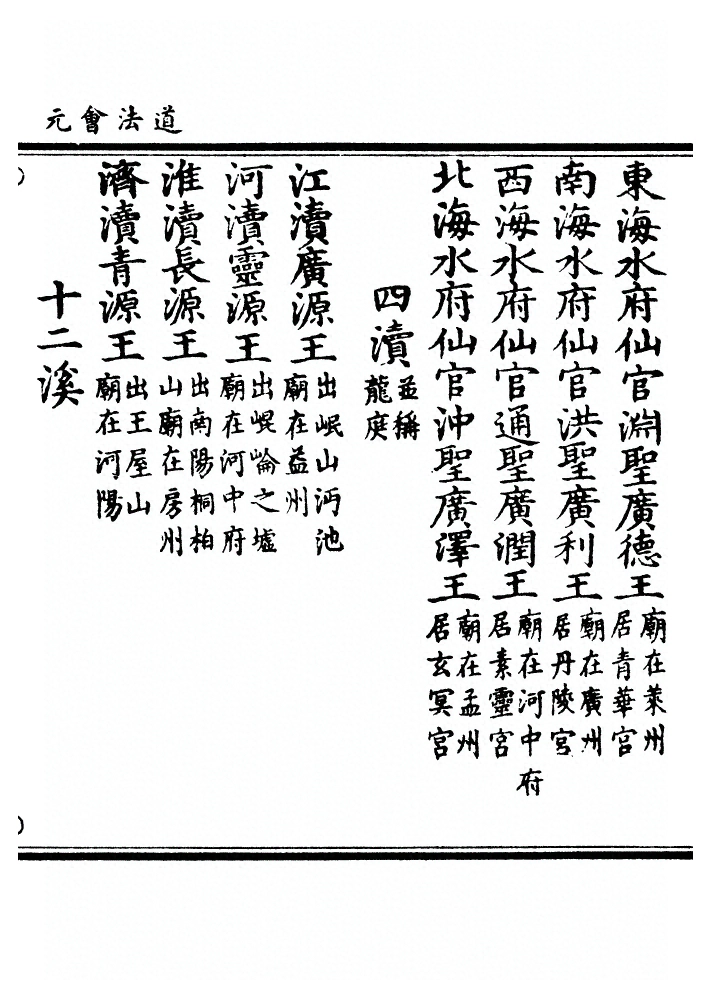 道法會元
東海水府仙官淵聖廣德王廟在萊州居青華宮
南海水府仙官洪聖廣利王廟在廣州居丹陵宮
西海水府仙官通聖廣潤王廟在河中府居素靈宮
北海水府仙官沖聖廣澤王廟在孟州居玄冥宮
四瀆並稱龍庭
江瀆廣源王出岷山沔池廟在益州
河瀆靈源王出崐崘之墟廟在河中府
淮瀆長源王出南陽桐柏山廟在房州
濟瀆青源王出王屋山廟在河陽
十二溪